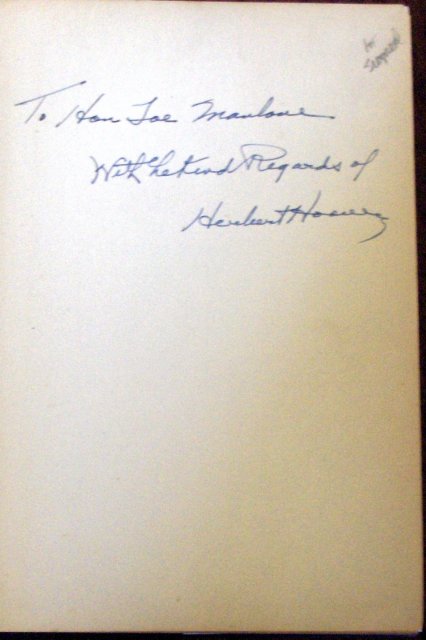 To Hon Joe Manlove
With the Kind Regards of
Herbert Hoover